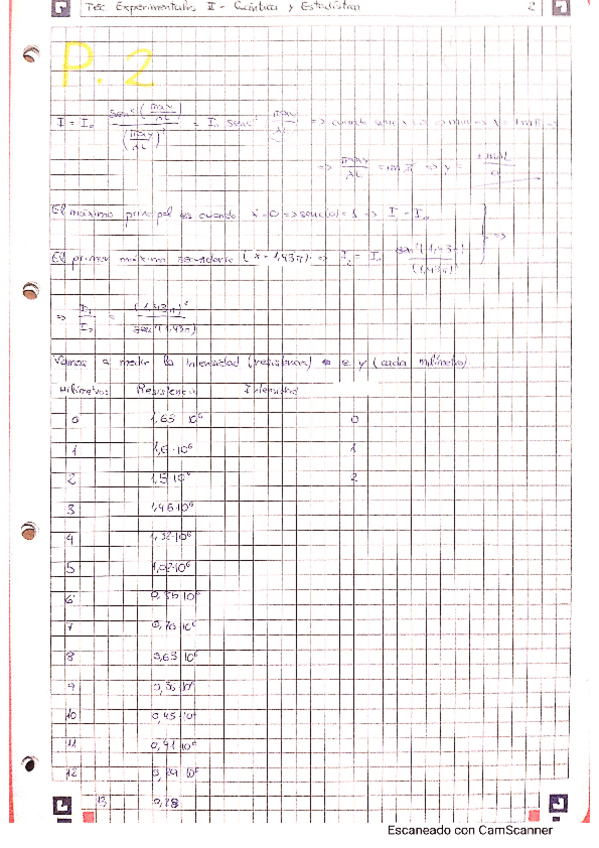 Tec Experimentales II - Cuántica y Estadística 2
P. 2
I = I₀ sen²(πay/λL) / (πay/λL)² = I₀ senc² πay/λL => cuando
=> πay/λL = mπ => y =
El máximo principal es cuando x=0 => senc(0) = 1 => I = I₀
El primer máximo secundario (x=1,43π) => I₂ = I₀ sen²(1,43π) / (1,43π)² } =>
=> I₁/I₂ = (1,43π)² / sen²(1,43π)
Vamos a medir la intensidad (resistencia) en y (cada milímetro)
milímetros Resistencia Intensidad
0 1,63 10⁶ 0
1 1,6·10⁶ 1
2 1,5·10⁶ 2
3 1,46·10⁶
4 1,32·10⁶
5 1,02·10⁶
6 10⁶
7 10⁶
8 0,63 10⁶
9 10⁶
10 0,45·10⁶
11 0,41·10⁶
12 10⁶
13 0,28
Escaneado con CamScanner